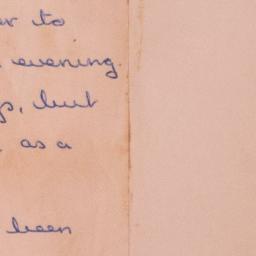 to
evening.
but
as a
been